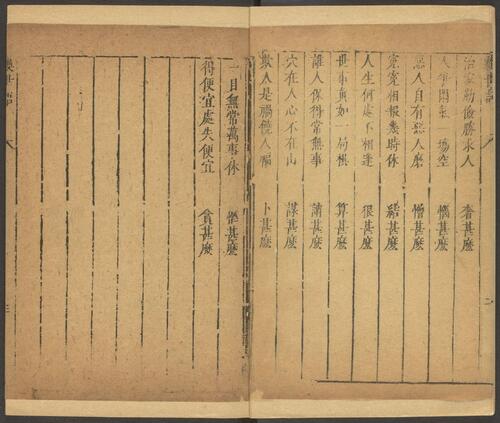 治家勤儉勝求人　奢甚麼
人爭閑氣一場空　惱甚麼
惡人自有惡人磨　憎甚麼
冤冤相報幾時休　結甚麼
人生何處不相逢　狠甚麼
世事真如一局棋　算甚麼
誰人保得常無事　誚甚麼
穴在人心不在山　謀甚麼
欺人是禍饒人福　卜甚麼
一旦無常萬事休　甚麼
得便宜處失便宜　貪甚麼